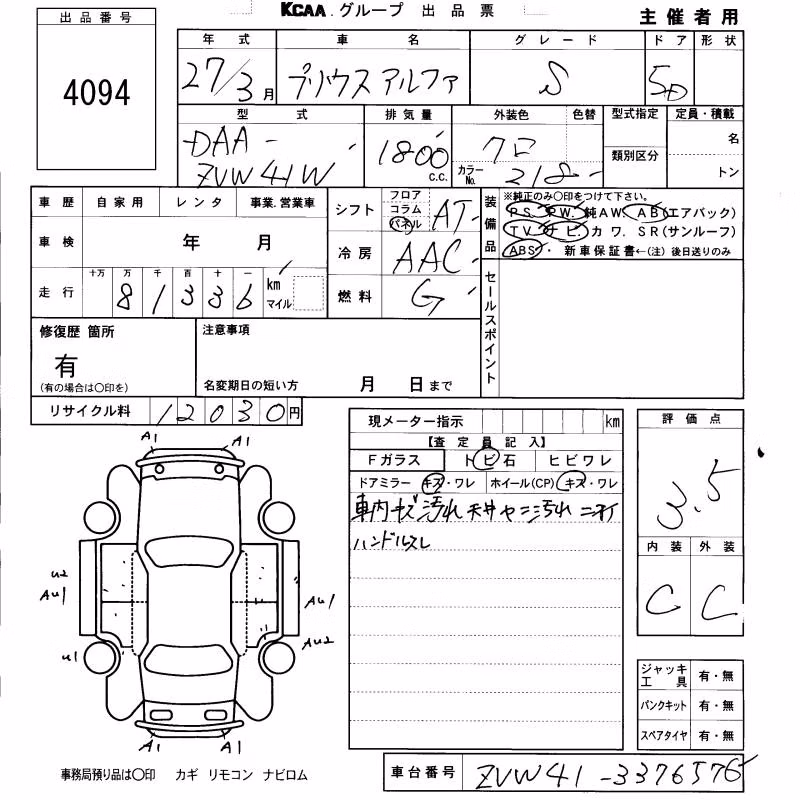 KCAA.グループ 出品票
主催者用
出品番号
4094
年式 車名 グレード ドア 形状
27/3月 プリウスアルファ S 5D
型式 排気量 外装色 色替 型式指定 定員・積載
DAA-
ZVW41W
1800 c.c.
クロ
カラーNo. 218
類別区分
名
トン
車歴 自家用 レンタ 事業.営業車
車検 年 月
走行 十万 万 千 百 十 一
81336 km マイル
シフト フロア コラム パネル AT
冷房 AAC
燃料 G
装備品
※純正のみ○印をつけて下さい。
PS. PW. 純AW. AB(エアバック)
TV. ナビ. カワ. SR(サンルーフ)
ABS・ 新車保証書←(注) 後日送りのみ
セールスポイント
修復歴 箇所
有
(有の場合は○印を)
注意事項
名変期日の短い方 月 日まで
リサイクル料 12030円
現メーター指示 km
【査定員記入】
Fガラス トビ石 ヒビワレ
ドアミラー キズ・ワレ ホイール(CP) キズ・ワレ
車内キズ汚れ 天井ヤニ汚れ ニオイ
ハンドルスレ
評価点
3.5
内装 外装
C C
ジャッキ工具 有・無
パンクキット 有・無
スペアタイヤ 有・無
A1 A1
U2
AU1
AU1
AU2
U1
A1 A1
事務局預り品は○印 カギ リモコン ナビロム
車台番号 ZVW41-3376576